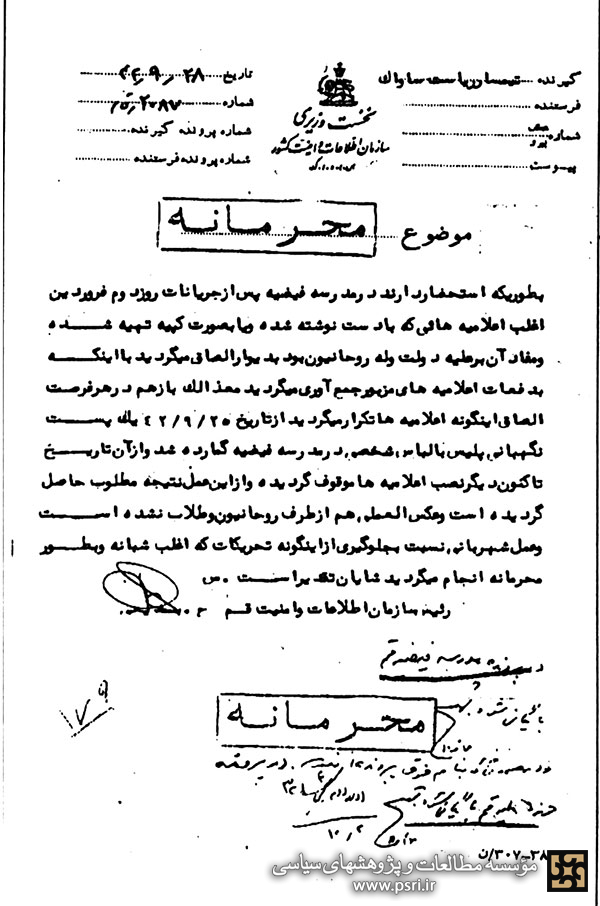 گیرنده تیمسار ریاست ساواک
فرستنده
شماره
پیوست
نخست وزیری
سازمان اطلاعات و امنیت کشور
س.ا.و.ا.ک
تاریخ ۴۲/۹/۲۸
شماره ۲۰۸۷
شماره پرونده گیرنده
شماره پرونده فرستنده
موضوع محرمانه
بطوریکه استحضار دارند در مدرسه فیضیه پس از جریانات روز دوم فروردین
اغلب اعلامیه هائی که با دست نوشته شده و یا بصورت کپیه تهیه شده
و مفاد آن بر علیه دولت و له روحانیون بود بدیوار الصاق میگردید با اینکه
بدفعات اعلامیه های مزبور جمع آوری میگردید معذالک باز هم در هر فرصت
الصاق اینگونه اعلامیه ها تکرار میگردید از تاریخ ۴۲/۹/۲۵ یک پست
نگهبانی پلیس با لباس شخصی در مدرسه فیضیه گمارده شد و از آن تاریخ
تاکنون دیگر نصب اعلامیه ها موقوف گردیده و از این عمل نتیجه مطلوب حاصل
گردیده است و عکس العملی هم از طرف روحانیون و طلاب نشده است
و عمل شهربانی نسبت بجلوگیری از اینگونه تحریکات که اغلب شبانه و بطور
محرمانه انجام میگردید شایان تقدیر است . س
رئیس سازمان اطلاعات و امنیت قم
مدرسه فیضیه قم
بایگانی شود
محرمانه
۱۷
۱۰/۲
۳۸-۳۰۷/ن
مؤسسه مطالعات و پژوهشهای سیاسی
www.psri.ir